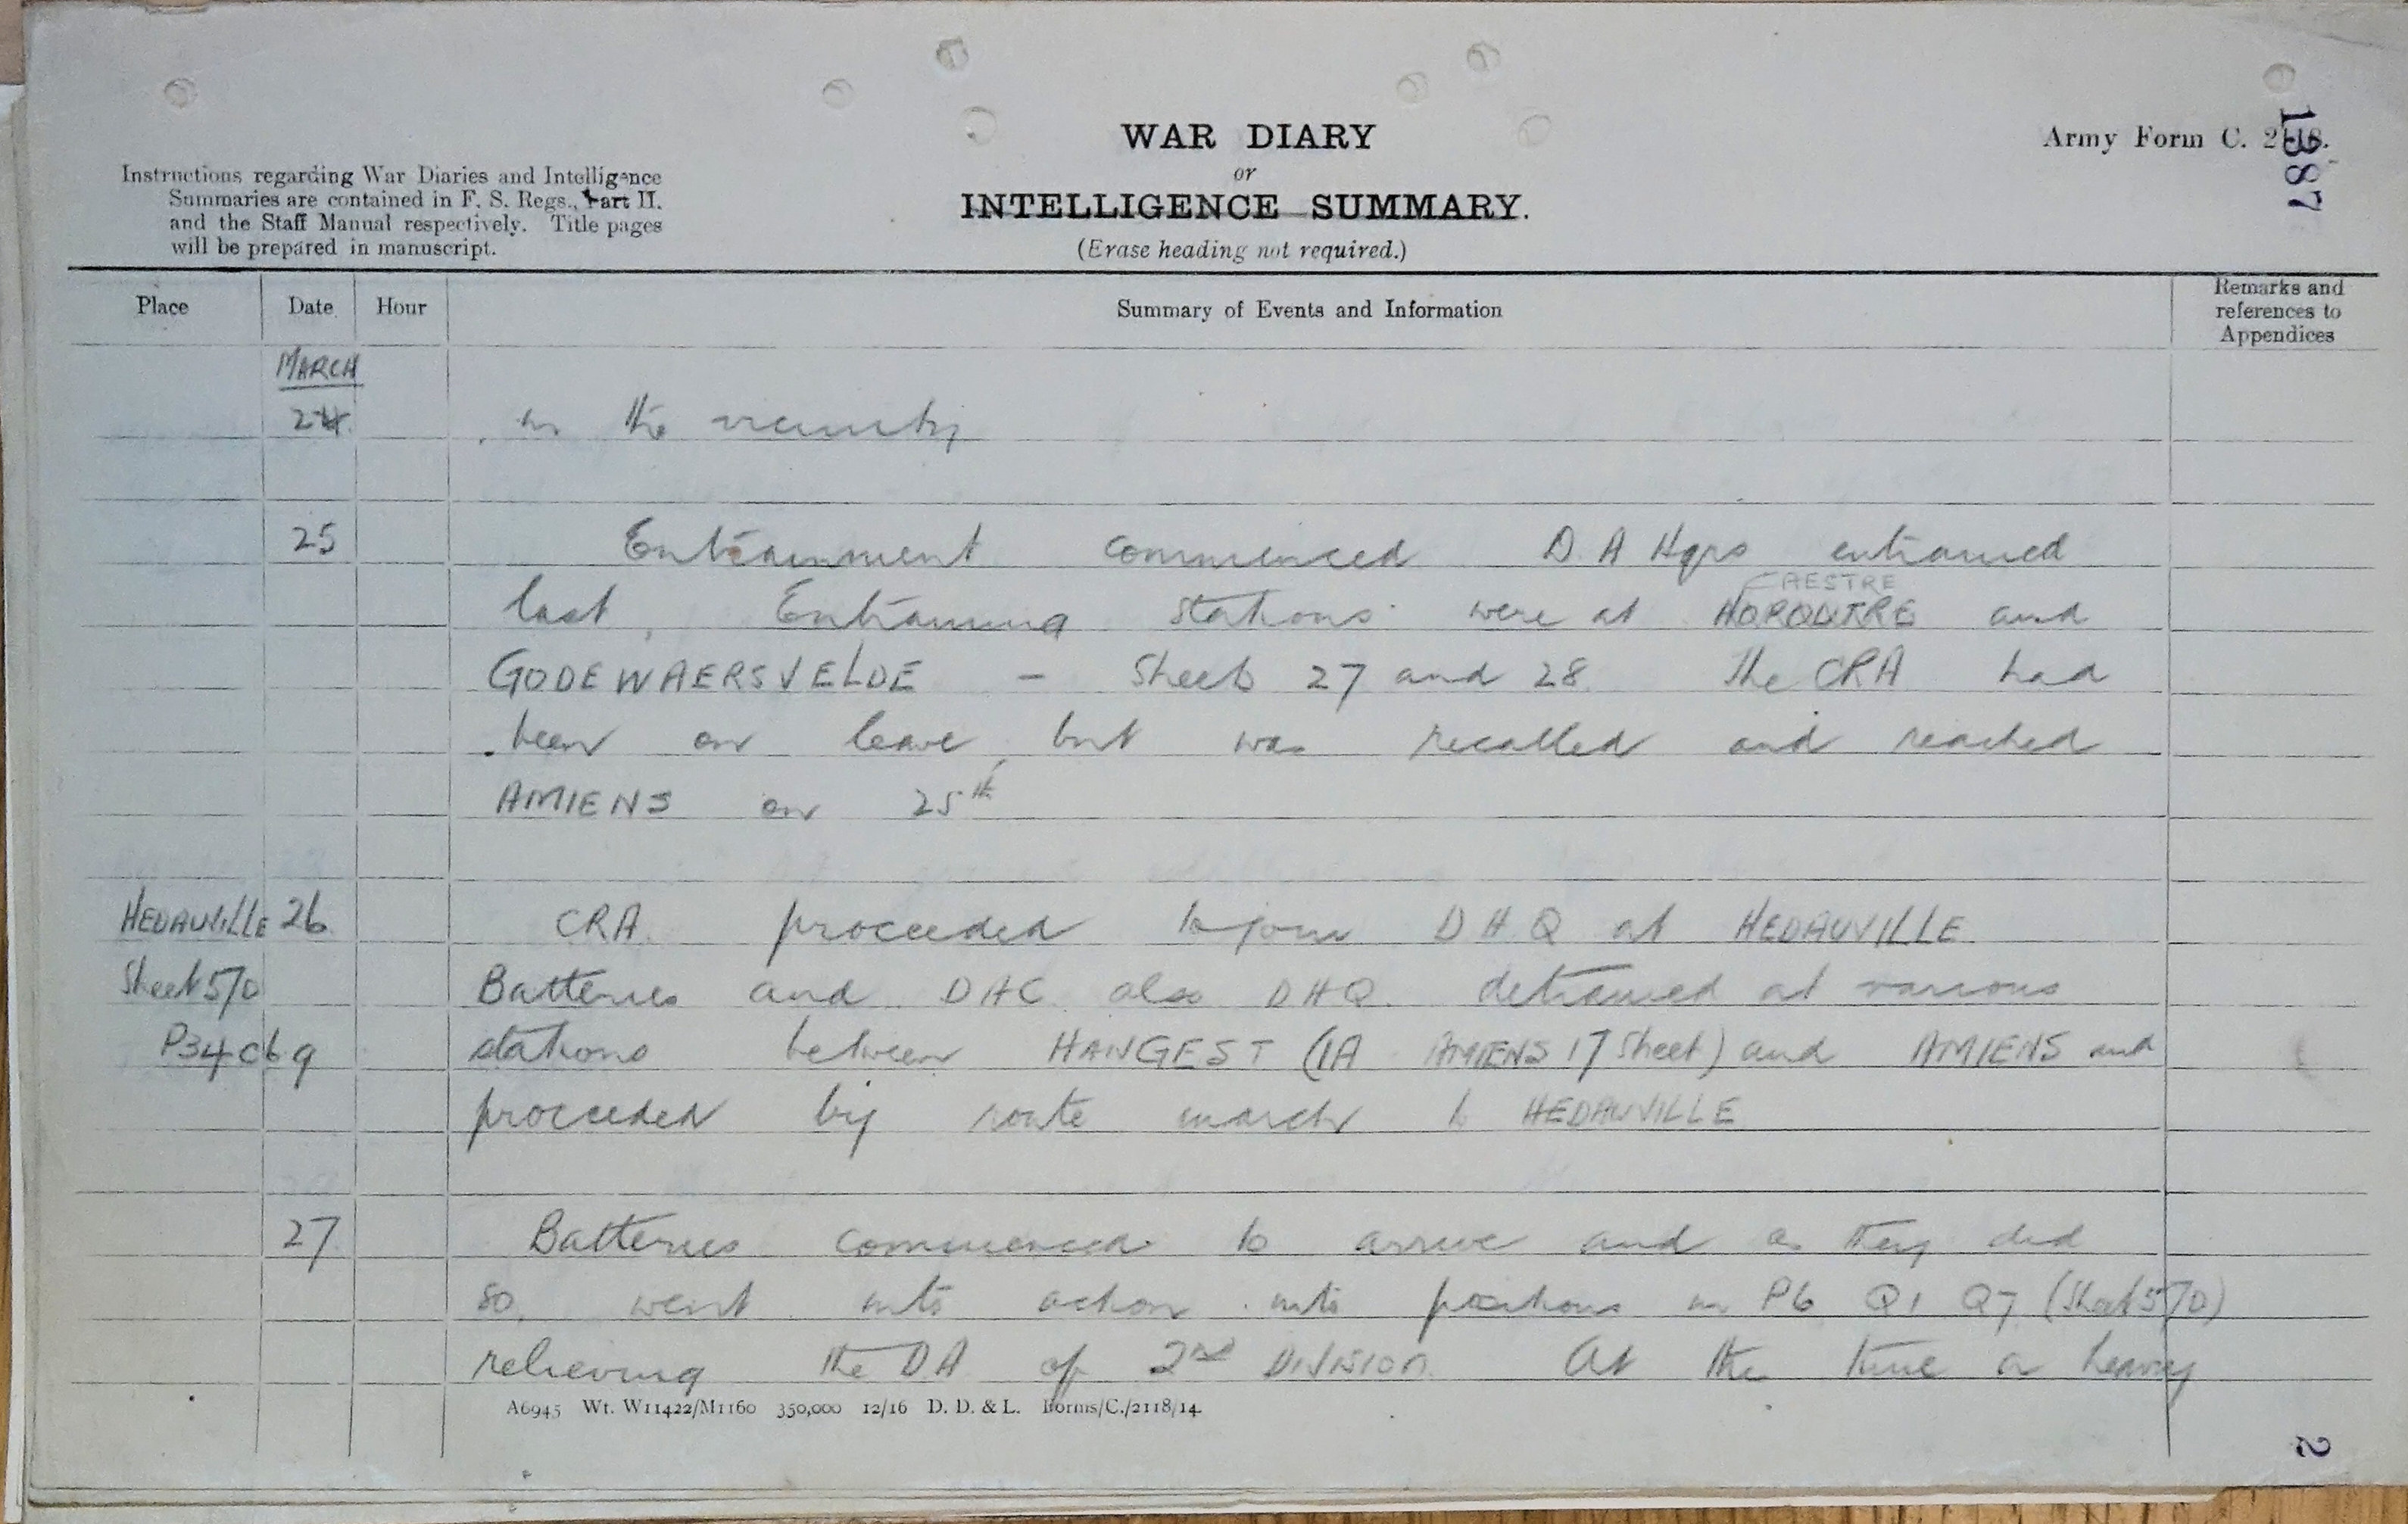 WAR DIARY
or
INTELLIGENCE SUMMARY.
(Erase heading not required.)
Army Form C. 2118.
1387
Instructions regarding War Diaries and Intelligence
Summaries are contained in F. S. Regs., Part II.
and the Staff Manual respectively. Title pages
will be prepared in manuscript.
Place Date Hour Summary of Events and Information Remarks and references to Appendices
MARCH
24. in the vicinity
25 Entrainment commenced D.A Hqrs entrained
CAESTRE
last, Entraining stations were at and
GODEWAERSVELDE - Sheets 27 and 28. The CRA had
been on leave, but was recalled and reached
AMIENS on 25th
HEDAUVILLE 26. CRA. proceeded to join D.H.Q at HEDAUVILLE.
Sheet 57D Batteries and DAC also DHQ. detrained at various
P34 c 6 9 stations between HANGEST (1A AMIENS 17 Sheet) and AMIENS and
proceeded by route march to HEDAUVILLE
27. Batteries commenced to arrive and as they did
so, went into action into positions in P6 Q1 Q7 (Sheet 57D)
relieving the DA of 2nd DIVISION. At the time a heavy
A6945 Wt. W11422/M1160 350,000 12/16 D. D. & L. Forms/C./2118/14.
2